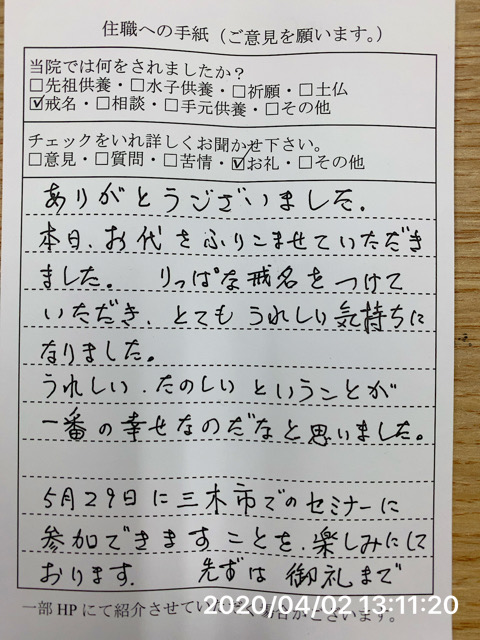 住職への手紙（ご意見を願います。）
当院では何をされましたか？
□先祖供養・□水子供養・□祈願・□土仏
☑戒名・□相談・□手元供養・□その他
チェックをいれ詳しくお聞かせ下さい。
□意見・□質問・□苦情・☑お礼・□その他
ありがとうございました。
本日、お代をふりこませていただき
ました。 りっぱな戒名をつけて
いただき、とてもうれしい気持ちに
なりました。
うれしい、たのしいということが
一番の幸せなのだなと思いました。
5月29日に三木市でのセミナーに
参加できますことを、楽しみにして
おります。 先ずは御礼まで
一部HPにて紹介させていただく場合がございます。
2020/04/02 13:11:20